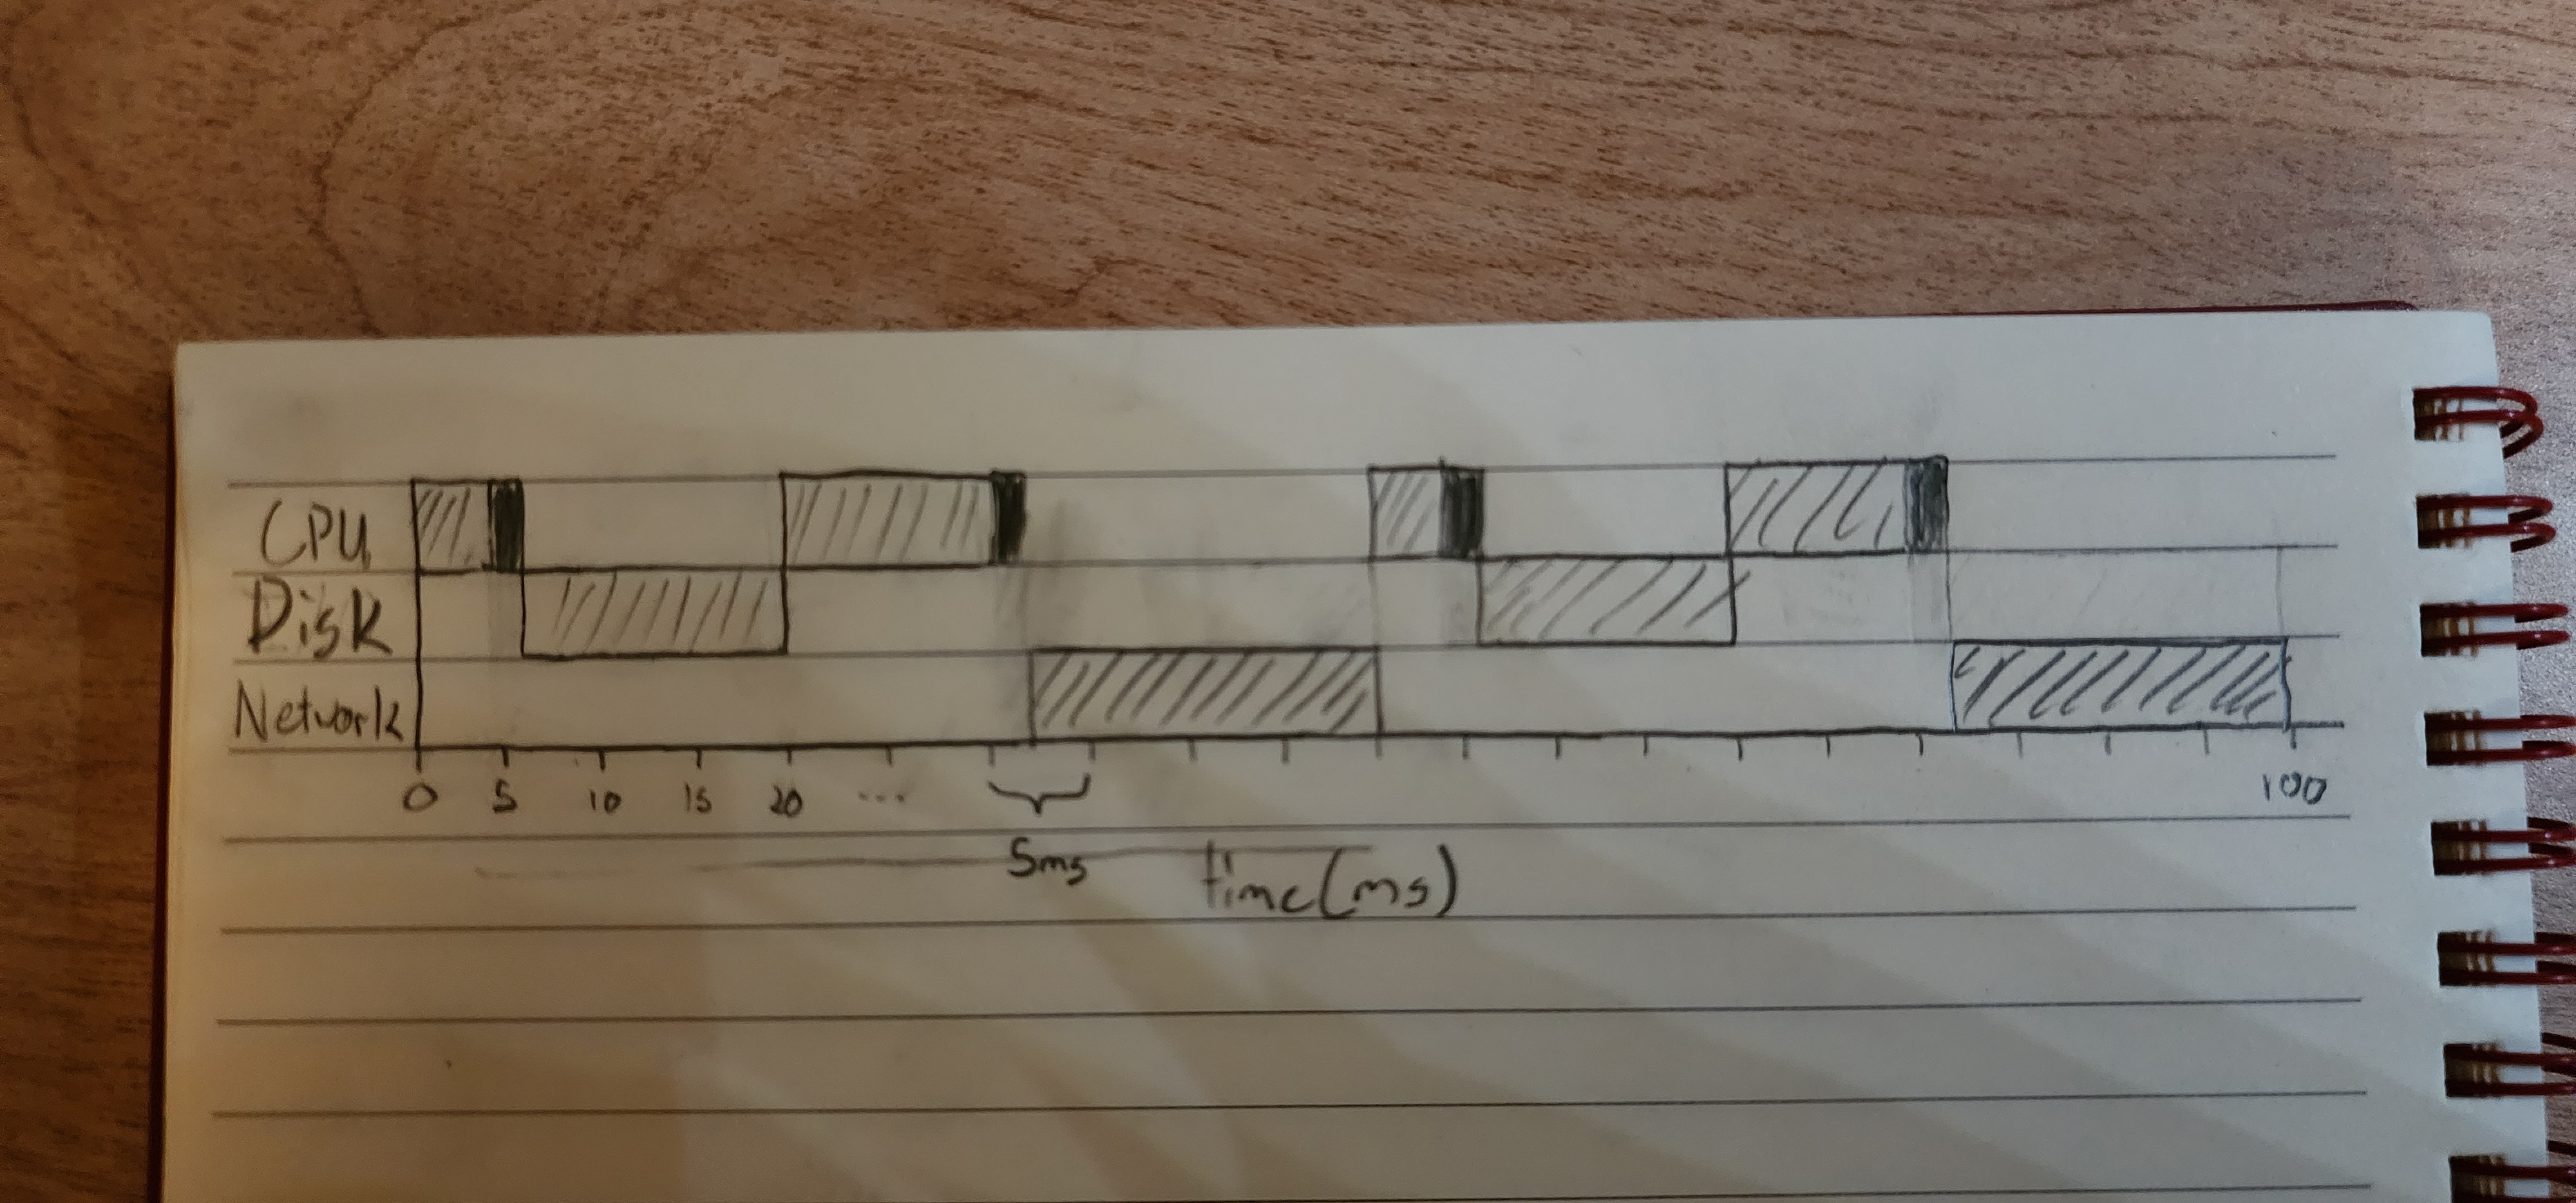 CPU
Disk
Network
0 5 10 15 20 .... 100
5ms
time(ms)